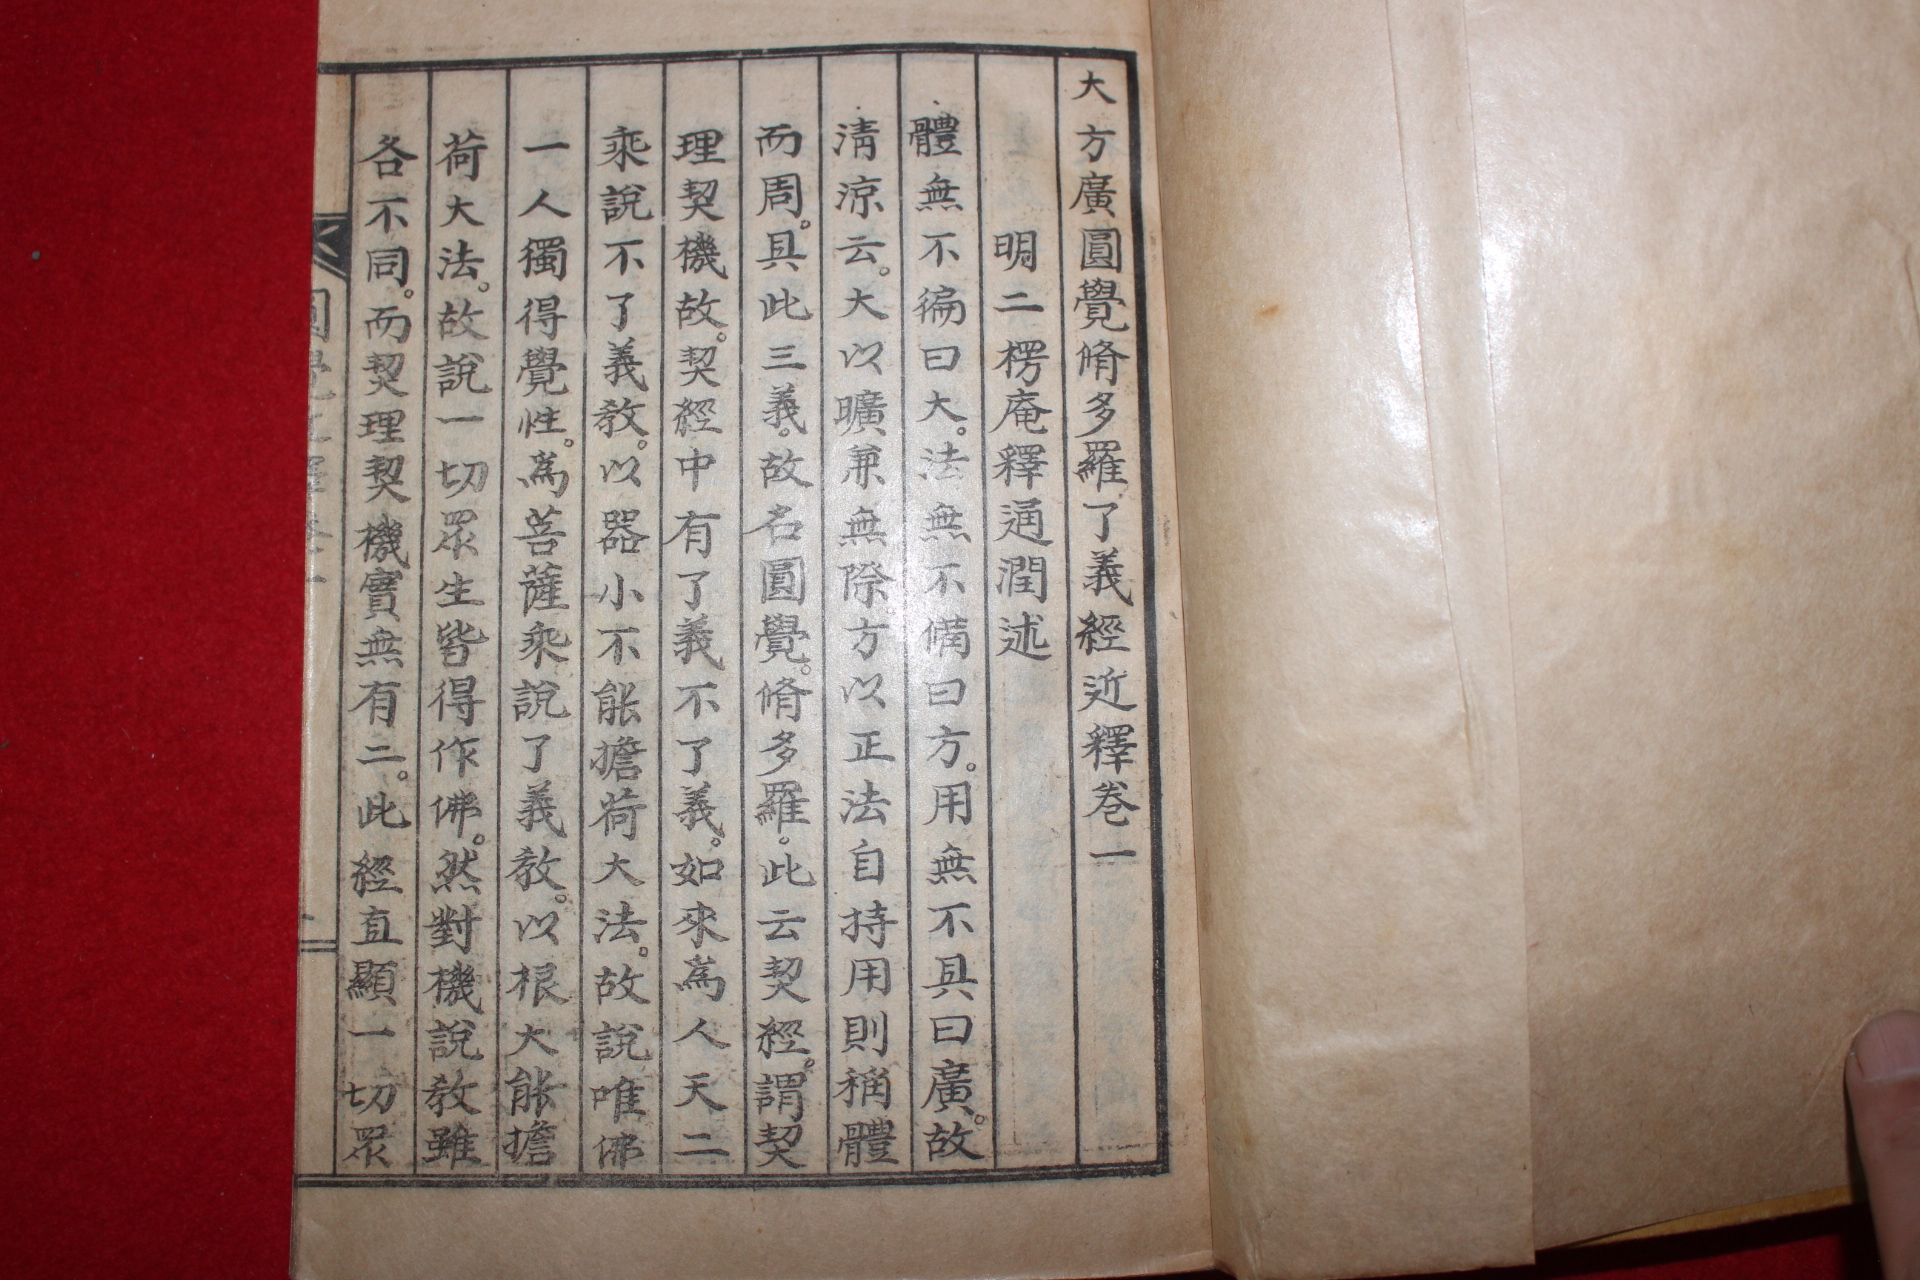 大方廣圓覺脩多羅了義經近釋卷一
明二楞庵釋通潤述
體無不徧曰大。法無不備曰方。用無不具曰廣。故
清涼云。大以曠兼無際。方以正法自持用則稱體
而周。具此三義。故名圓覺。脩多羅。此云契經。謂契
理契機故。契經中有了義不了義。如來為人天二
乘說不了義教。以器小不能擔荷大法。故說唯佛
一人獨得覺性。為菩薩乘說了義教。以根大能擔
荷大法。故說一切眾生皆得作佛。然對機說教雖
各不同。而契理契機實無有二。此經直顯一切眾